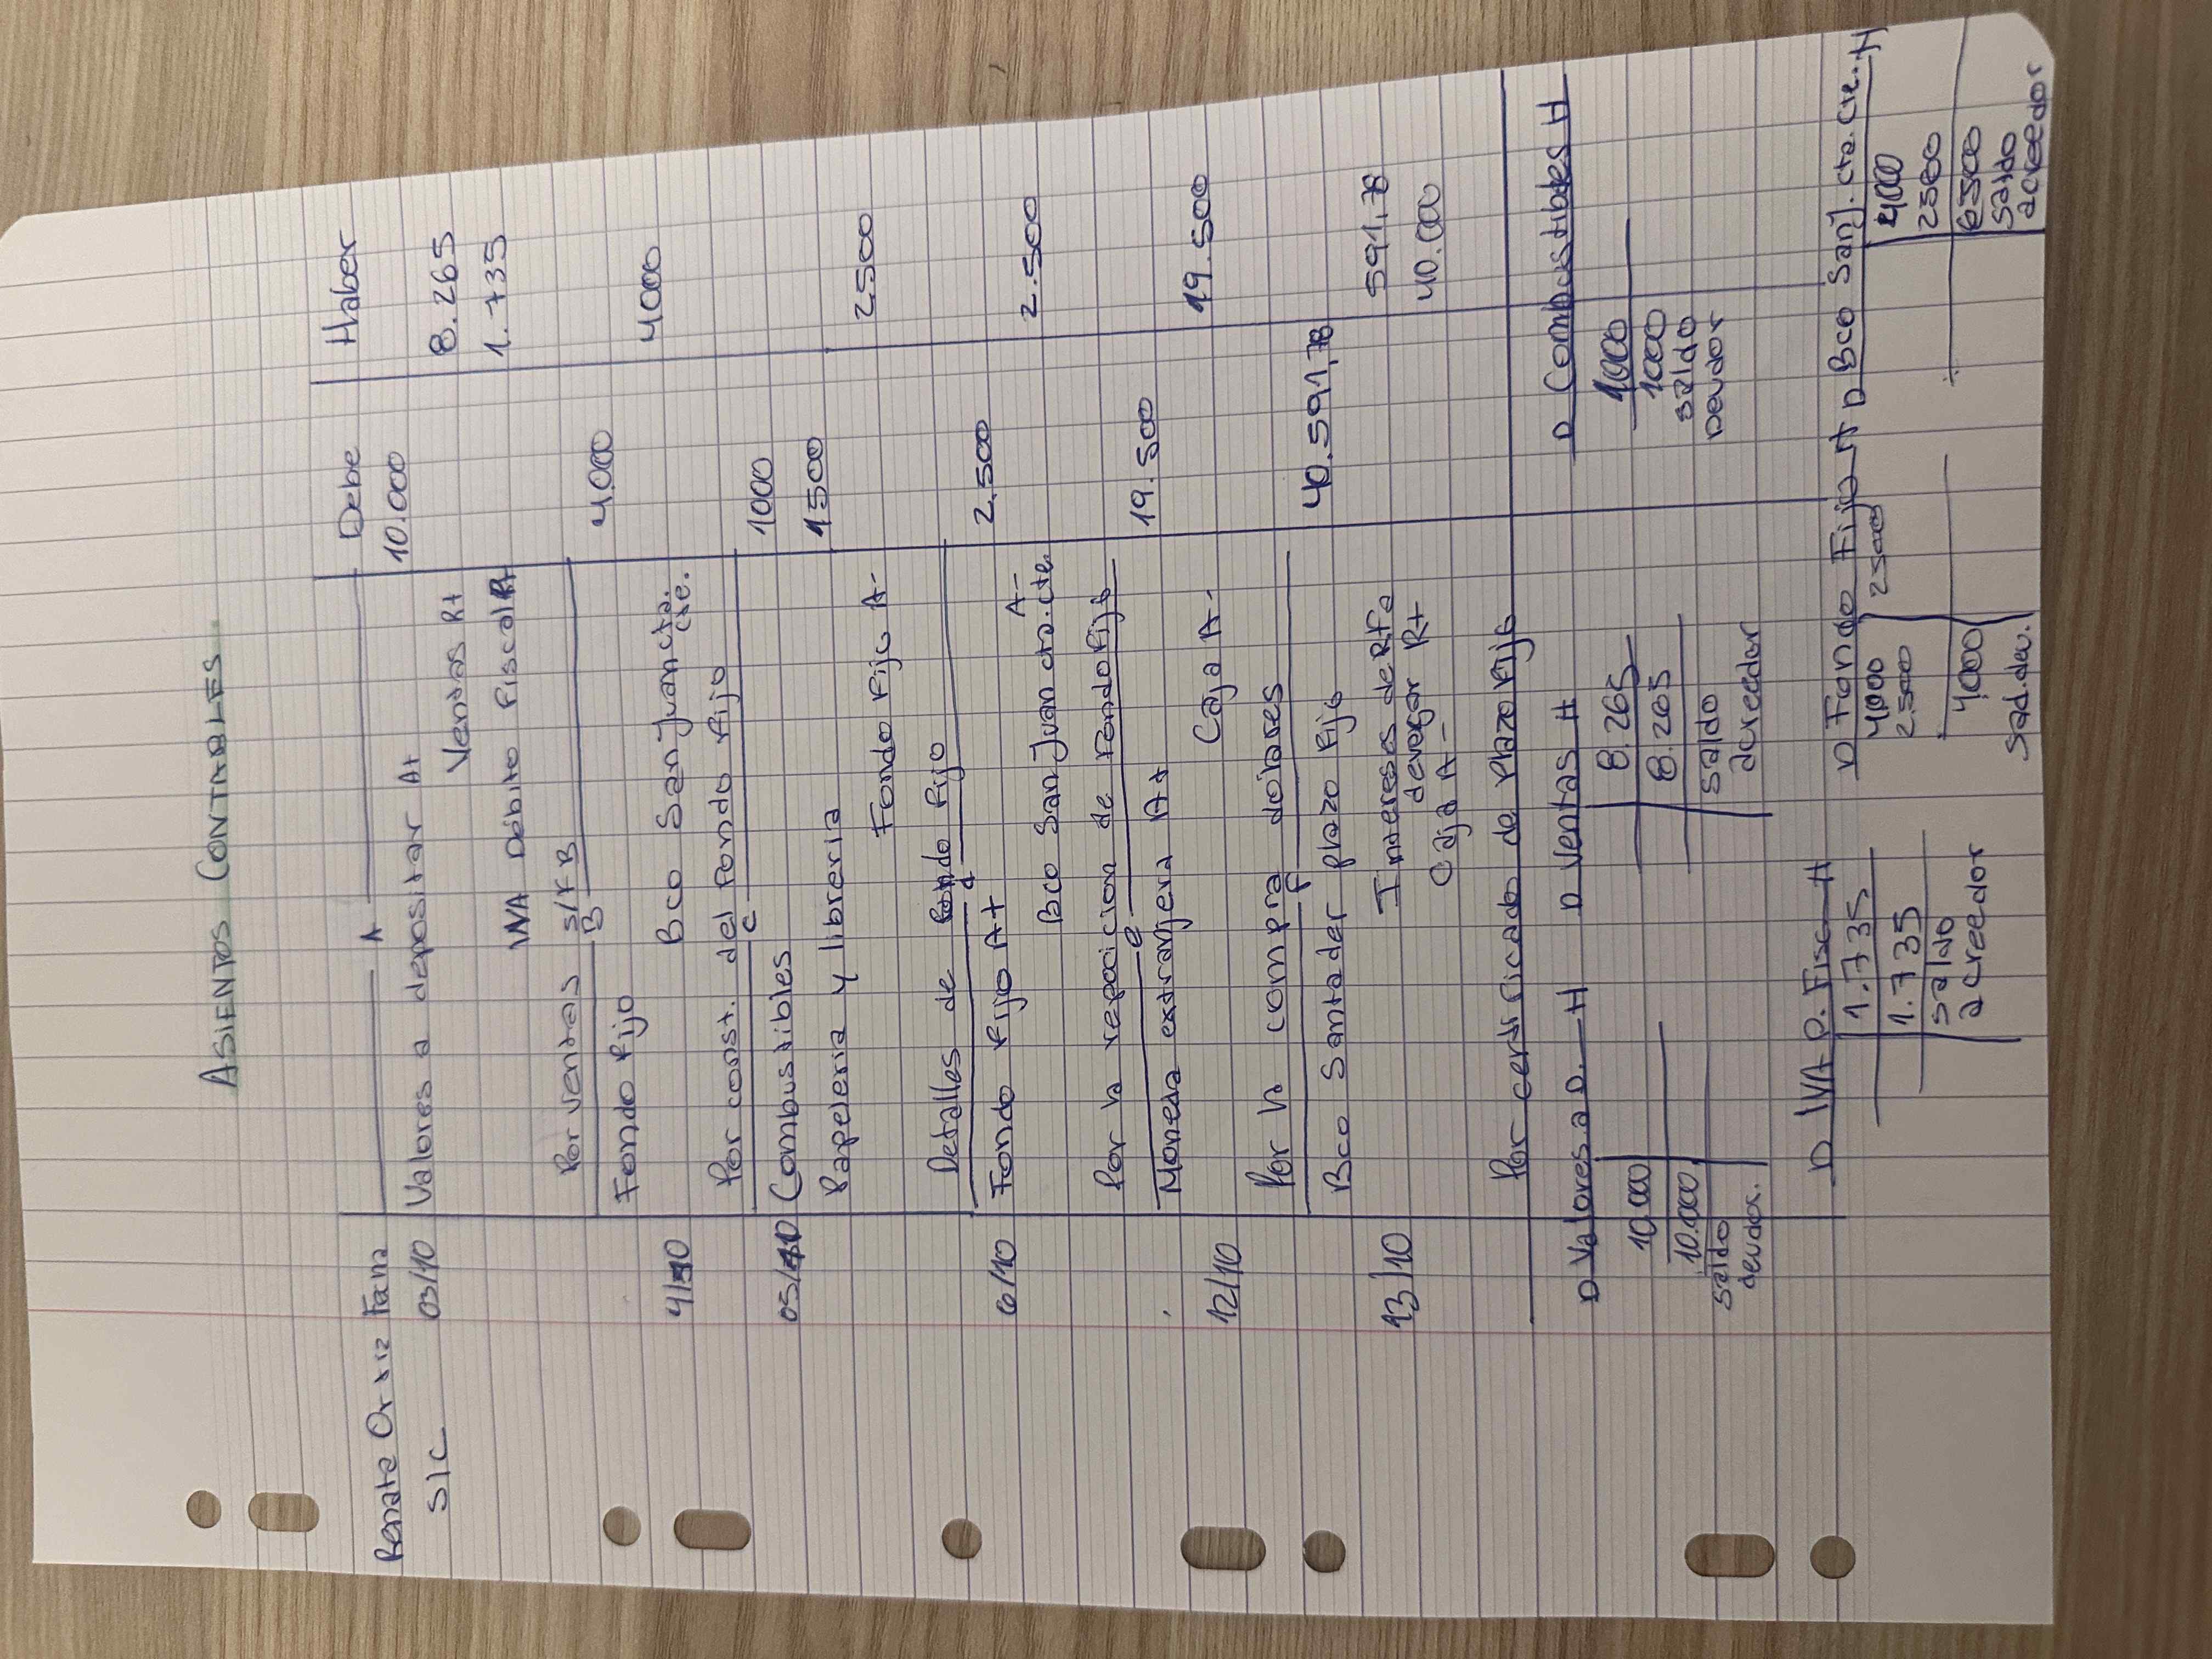 ASIENTOS CONTABLES
Renata Ortiz
S/C
Debe Haber
A
03/10 Valores a depositar A+ 10.000
Ventas R+ 8.265
IVA Débito Fiscal 1.735
Por ventas S/F B
B
Fondo Fijo 4.000
4/10 Bco San Juan cta. cte. 4000
Por const. del Fondo Fijo
C
05/10 Combustibles 1000
Papeleria y libreria 1500
Fondo Fijo A- 2500
Detalles de Fondo Fijo
d
6/10 Fondo Fijo A+ 2.500
Bco San Juan cta. cte. A- 2.500
Por la repocicion de Fondo Fijo
e
Moneda extranjera A+ 19.500
12/10 Caja A- 19.500
Por la compra dolares
F
Bco Santader plazo Fijo 40.591,78
13/10 Intereses de P.Fa devegar R+ 591,78
Caja A- 40.000
Por certificado de Plazo Fijo
D Valores a D. H
10.000
10.000
saldo
deudor.
D Ventas H
8.265
8.265
saldo
acreedor
D Combustibles H
1000
1000
saldo
Deudor
D IVA D. Fisc H
1.735
1.735
saldo
acreedor
D Fondo Fijo H
4000 2500
2.500
4000
Sad.deu.
D Bco Sanj. cta. cte. H
4000
2500
6500
saldo
acreedor